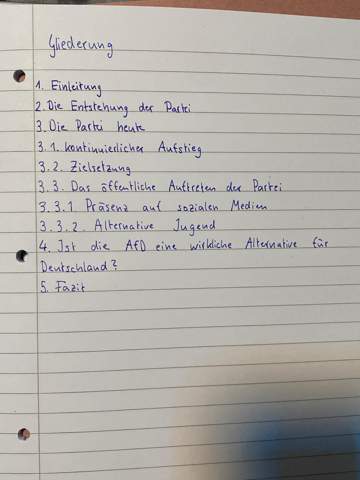 Gliederung
1. Einleitung
2. Die Entstehung der Partei
3. Die Partei heute
3.1. kontinuierlicher Aufstieg
3.2. Zielsetzung
3.3. Das öffentliche Auftreten der Partei
3.3.1 Präsenz auf sozialen Medien
3.3.2. Alternative Jugend
4. Ist die AfD eine wirkliche Alternative für
Deutschland?
5. Fazit